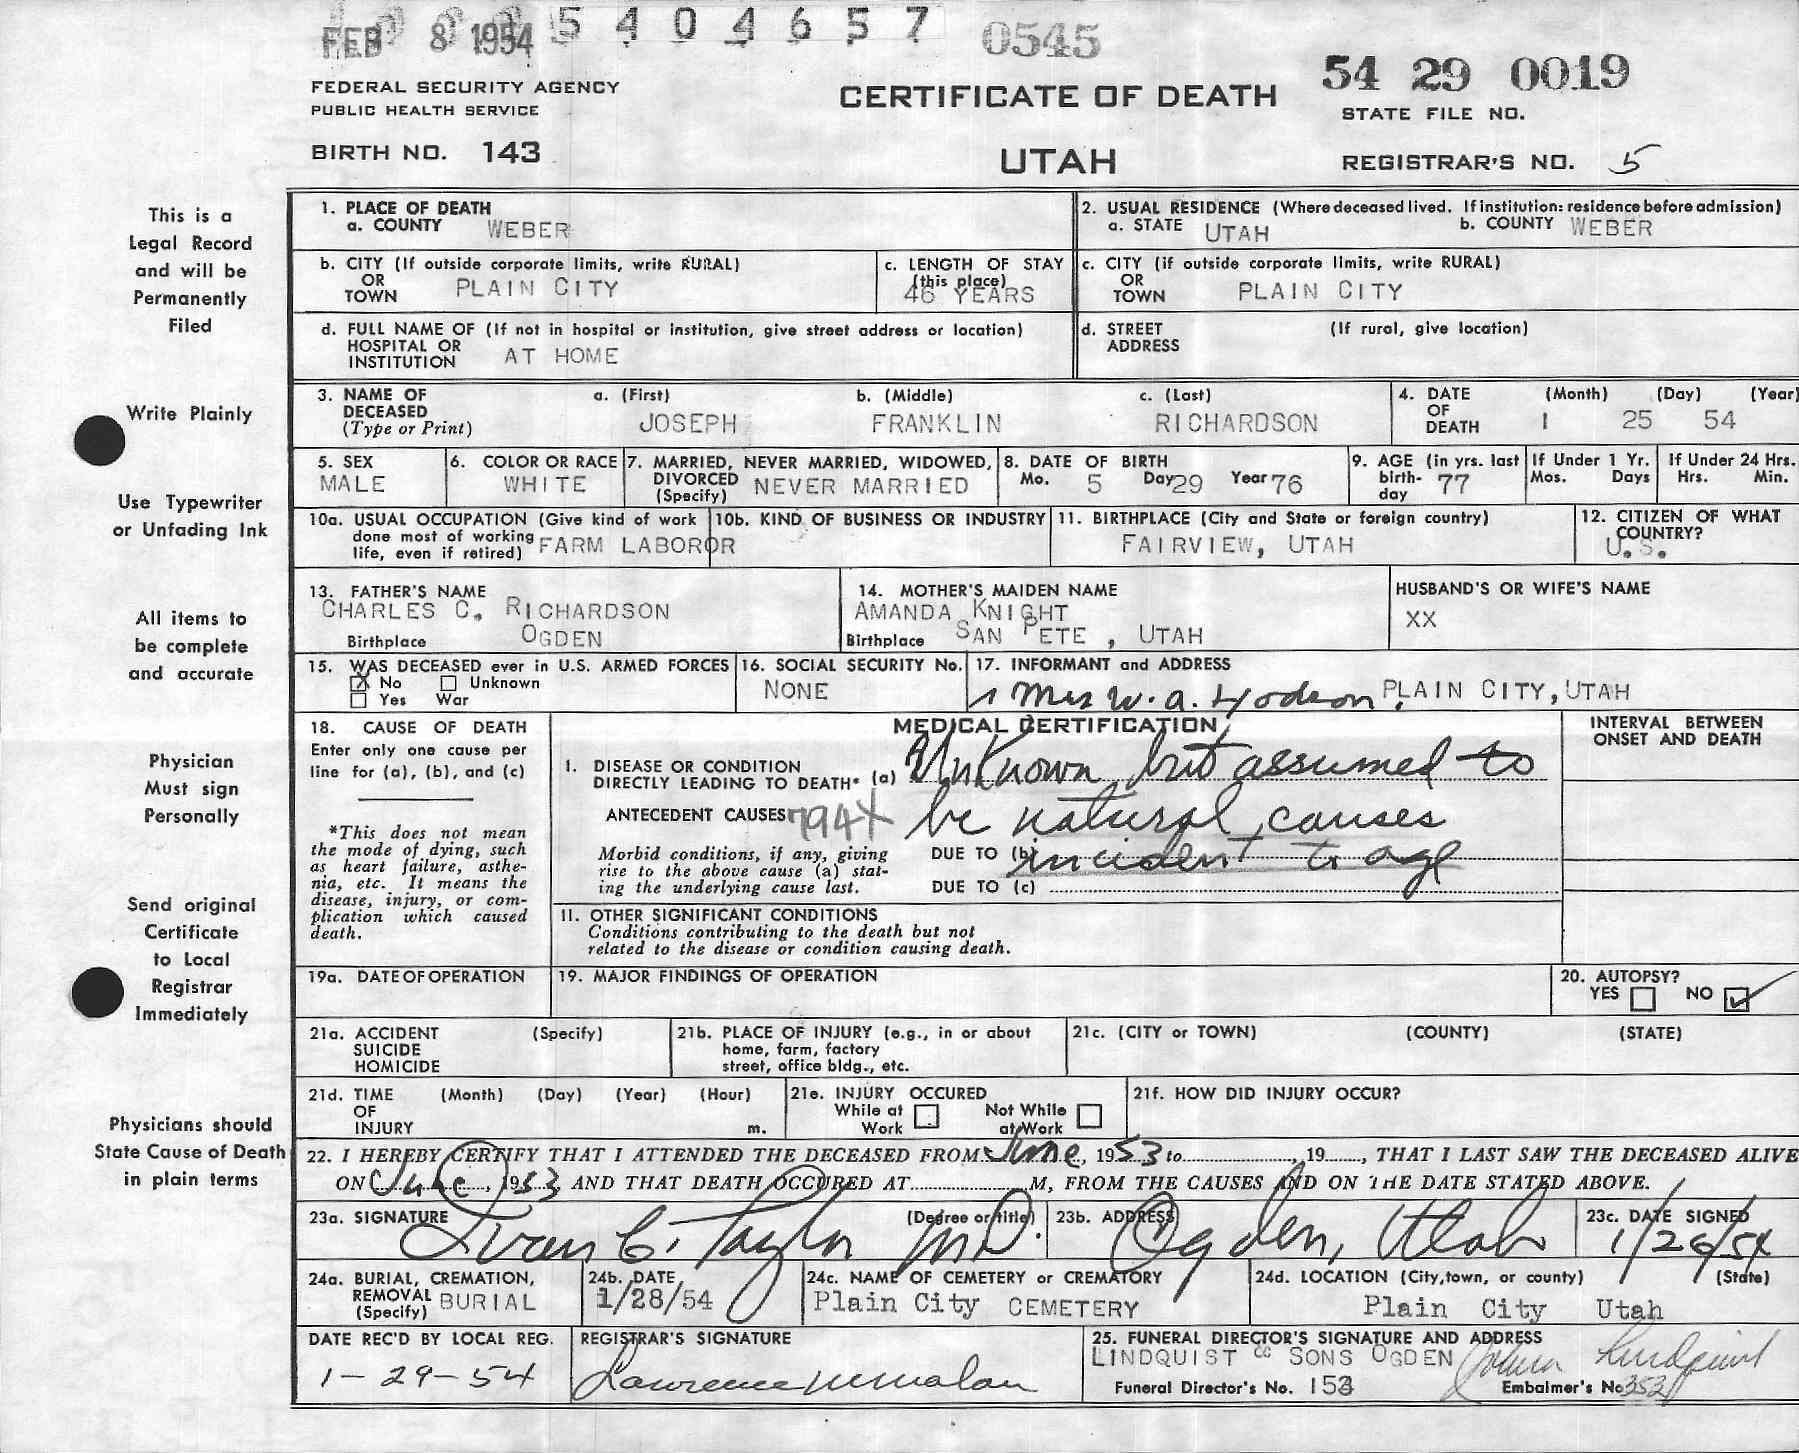 FEB 8 1954 5 4 0 4 6 5 7 0545
54 29 0019
FEDERAL SECURITY AGENCY
PUBLIC HEALTH SERVICE
CERTIFICATE OF DEATH
STATE FILE NO.
BIRTH NO. 143
UTAH
REGISTRAR'S NO. 5
This is a
Legal Record
and will be
Permanently
Filed
Write Plainly
Use Typewriter
or Unfading Ink
All items to
be complete
and accurate
Physician
Must sign
Personally
Send original
Certificate
to Local
Registrar
Immediately
Physicians should
State Cause of Death
in plain terms
1. PLACE OF DEATH
a. COUNTY WEBER
2. USUAL RESIDENCE (Where deceased lived. If institution: residence before admission)
a. STATE UTAH b. COUNTY WEBER
b. CITY (If outside corporate limits, write RURAL)
OR
TOWN PLAIN CITY
c. LENGTH OF STAY
(this place)
46 YEARS
c. CITY (if outside corporate limits, write RURAL)
OR
TOWN PLAIN CITY
d. FULL NAME OF (If not in hospital or institution, give street address or location)
HOSPITAL OR
INSTITUTION AT HOME
d. STREET (If rural, give location)
ADDRESS
3. NAME OF
DECEASED
(Type or Print)
a. (First) b. (Middle) c. (Last)
JOSEPH FRANKLIN RICHARDSON
4. DATE
OF
DEATH
(Month) (Day) (Year)
1 25 54
5. SEX
MALE
6. COLOR OR RACE
WHITE
7. MARRIED, NEVER MARRIED, WIDOWED,
DIVORCED
(Specify) NEVER MARRIED
8. DATE OF BIRTH
Mo. 5 Day 29 Year 76
9. AGE (in yrs. last
birth-
day 77
If Under 1 Yr.
Mos. Days
If Under 24 Hrs.
Hrs. Min.
10a. USUAL OCCUPATION (Give kind of work
done most of working
life, even if retired) FARM LABOROR
10b. KIND OF BUSINESS OR INDUSTRY
11. BIRTHPLACE (City and State or foreign country)
FAIRVIEW, UTAH
12. CITIZEN OF WHAT
COUNTRY?
U.S.
13. FATHER'S NAME
CHARLES C. RICHARDSON
Birthplace OGDEN
14. MOTHER'S MAIDEN NAME
AMANDA KNIGHT
Birthplace SAN PETE , UTAH
HUSBAND'S OR WIFE'S NAME
XX
15. WAS DECEASED ever in U.S. ARMED FORCES
X No Unknown
Yes War
16. SOCIAL SECURITY No.
NONE
17. INFORMANT and ADDRESS
Mrs W. A. Hodson, PLAIN CITY, UTAH
18. CAUSE OF DEATH
Enter only one cause per
line for (a), (b), and (c)
*This does not mean
the mode of dying, such
as heart failure, asthe-
nia, etc. It means the
disease, injury, or com-
plication which caused
death.
MEDICAL CERTIFICATION
I. DISEASE OR CONDITION
DIRECTLY LEADING TO DEATH* (a) Unknown, but assumed to
ANTECEDENT CAUSES 794X be natural causes
Morbid conditions, if any, giving
rise to the above cause (a) stat-
ing the underlying cause last.
DUE TO (b) incident to age
DUE TO (c)
II. OTHER SIGNIFICANT CONDITIONS
Conditions contributing to the death but not
related to the disease or condition causing death.
INTERVAL BETWEEN
ONSET AND DEATH
19a. DATE OF OPERATION
19. MAJOR FINDINGS OF OPERATION
20. AUTOPSY?
YES NO ✓
21a. ACCIDENT (Specify)
SUICIDE
HOMICIDE
21b. PLACE OF INJURY (e.g., in or about
home, farm, factory
street, office bldg., etc.
21c. (CITY or TOWN) (COUNTY) (STATE)
21d. TIME (Month) (Day) (Year) (Hour)
OF
INJURY m.
21e. INJURY OCCURED
While at Not While
Work at Work
21f. HOW DID INJURY OCCUR?
22. I HEREBY CERTIFY THAT I ATTENDED THE DECEASED FROM June, 1953 to, 19, THAT I LAST SAW THE DECEASED ALIVE
ON June, 1953 AND THAT DEATH OCCURED AT M, FROM THE CAUSES AND ON THE DATE STATED ABOVE.
23a. SIGNATURE (Degree or title)
Ivan C. Taylor M.D.
23b. ADDRESS
Ogden, Utah
23c. DATE SIGNED
1/26/54
24a. BURIAL, CREMATION,
REMOVAL
(Specify) BURIAL
24b. DATE
1/28/54
24c. NAME OF CEMETERY or CREMATORY
Plain City CEMETERY
24d. LOCATION (City, town, or county) (State)
Plain City Utah
DATE REC'D BY LOCAL REG.
1-29-54
REGISTRAR'S SIGNATURE
Lawrence
25. FUNERAL DIRECTOR'S SIGNATURE AND ADDRESS
LINDQUIST & SONS OGDEN Lindquist
Funeral Director's No. 153 Embalmer's No. 353